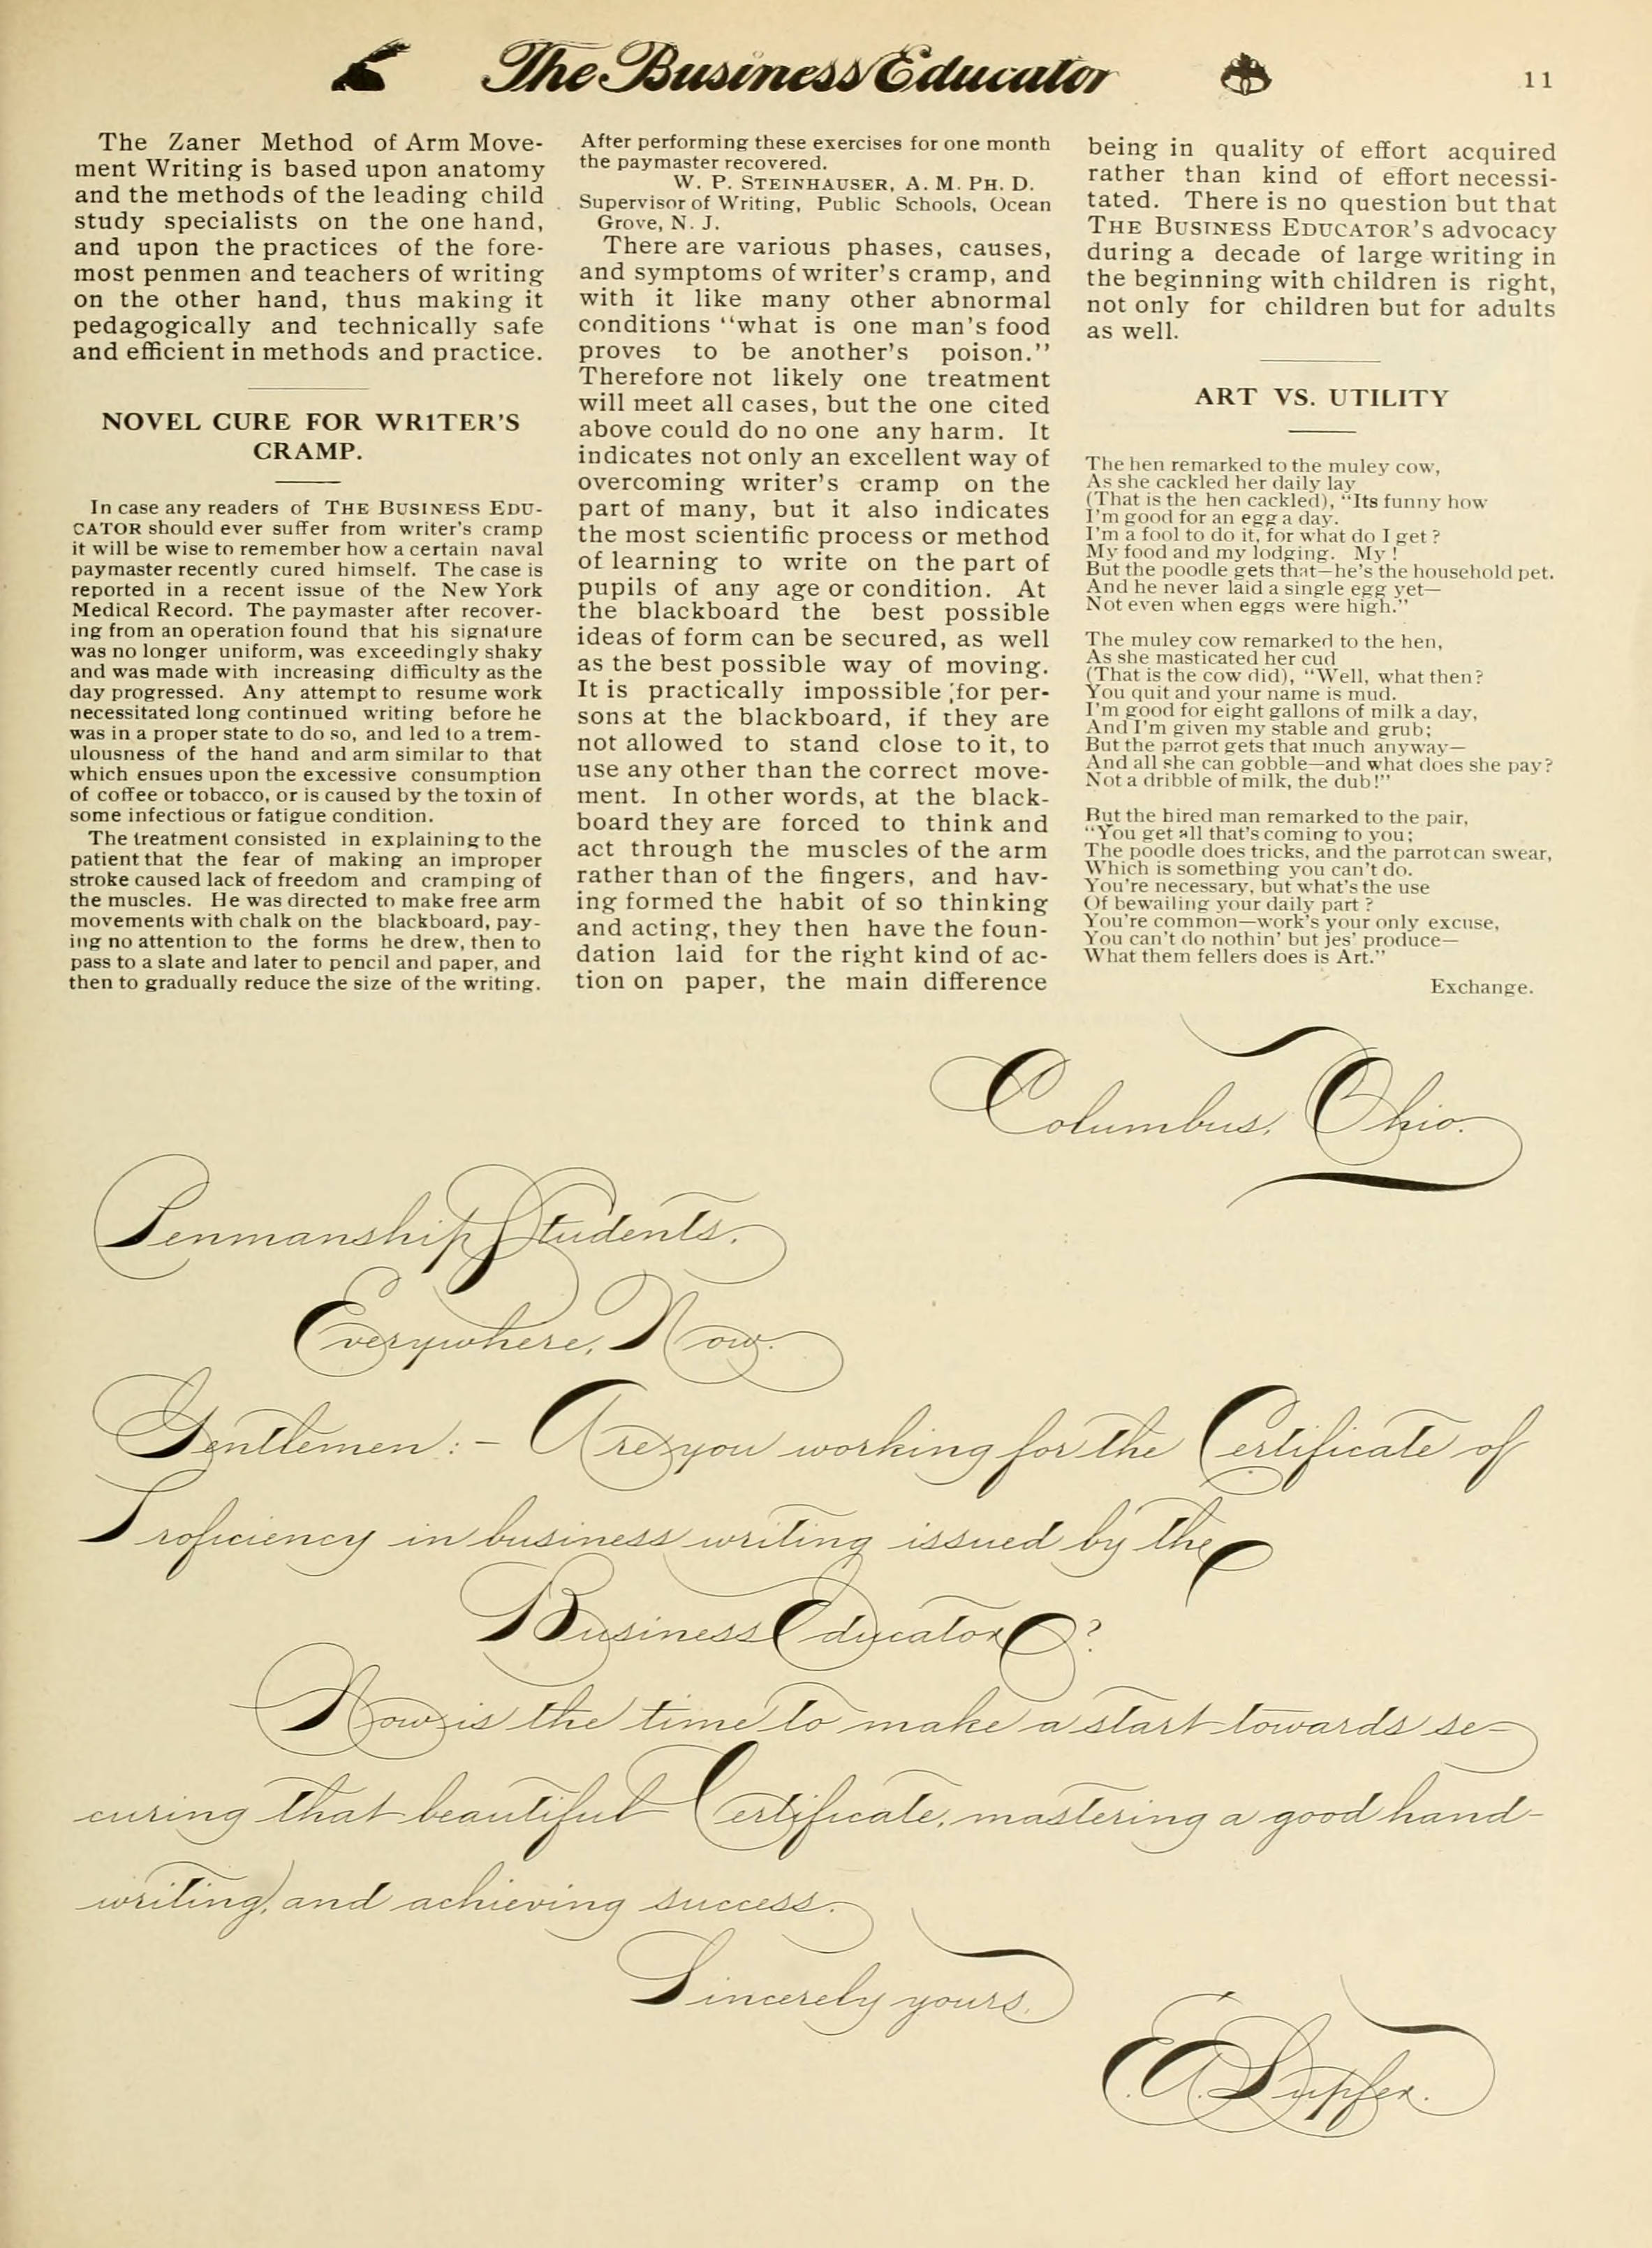 The Business Educator
11
The Zaner Method of Arm Move-
ment Writing is based upon anatomy
and the methods of the leading child
study specialists on the one hand,
and upon the practices of the fore-
most penmen and teachers of writing
on the other hand, thus making it
pedagogically and technically safe
and efficient in methods and practice.
NOVEL CURE FOR WR1TER'S
CRAMP.
In case any readers of THE BUSINESS EDU-
CATOR should ever suffer from writer's cramp
it will be wise to remember how a certain naval
paymaster recently cured himself. The case is
reported in a recent issue of the New York
Medical Record. The paymaster after recover-
ing from an operation found that his signature
was no longer uniform, was exceedingly shaky
and was made with increasing difficulty as the
day progressed. Any attempt to resume work
necessitated long continued writing before he
was in a proper state to do so, and led to a trem-
ulousness of the hand and arm similar to that
which ensues upon the excessive consumption
of coffee or tobacco, or is caused by the toxin of
some infectious or fatigue condition.
The treatment consisted in explaining to the
patient that the fear of making an improper
stroke caused lack of freedom and cramping of
the muscles. He was directed to make free arm
movements with chalk on the blackboard, pay-
ing no attention to the forms he drew, then to
pass to a slate and later to pencil and paper, and
then to gradually reduce the size of the writing.
After performing these exercises for one month
the paymaster recovered.
W. P. STEINHAUSER, A. M. PH. D.
Supervisor of Writing, Public Schools, Ocean
Grove, N. J.
There are various phases, causes,
and symptoms of writer's cramp, and
with it like many other abnormal
conditions "what is one man's food
proves to be another's poison."
Therefore not likely one treatment
will meet all cases, but the one cited
above could do no one any harm. It
indicates not only an excellent way of
overcoming writer's cramp on the
part of many, but it also indicates
the most scientific process or method
of learning to write on the part of
pupils of any age or condition. At
the blackboard the best possible
ideas of form can be secured, as well
as the best possible way of moving.
It is practically impossible for per-
sons at the blackboard, if they are
not allowed to stand close to it, to
use any other than the correct move-
ment. In other words, at the black-
board they are forced to think and
act through the muscles of the arm
rather than of the fingers, and hav-
ing formed the habit of so thinking
and acting, they then have the foun-
dation laid for the right kind of ac-
tion on paper, the main difference
being in quality of effort acquired
rather than kind of effort necessi-
tated. There is no question but that
THE BUSINESS EDUCATOR'S advocacy
during a decade of large writing in
the beginning with children is right,
not only for children but for adults
as well.
ART VS. UTILITY
The hen remarked to the muley cow,
As she cackled her daily lay
(That is the hen cackled), "Its funny how
I'm good for an egg a day.
I'm a fool to do it, for what do I get?
My food and my lodging. My!
But the poodle gets that—he's the household pet.
And he never laid a single egg yet—
Not even when eggs were high."
The muley cow remarked to the hen,
As she masticated her cud
(That is the cow did), "Well, what then?
You quit and your name is mud.
I'm good for eight gallons of milk a day,
And I'm given my stable and grub;
But the parrot gets that much anyway—
And all she can gobble—and what does she pay?
Not a dribble of milk, the dub!"
But the hired man remarked to the pair,
"You get all that's coming to you;
The poodle does tricks, and the parrot can swear,
Which is something you can't do.
You're necessary, but what's the use
Of bewailing your daily part?
You're common—work's your only excuse,
You can't do nothin' but jes' produce—
What them fellers does is Art."
Exchange.
Columbus, Ohio.
Penmanship Students.
Everywhere, Now.
Gentlemen:- Are you working for the Certificate of
Proficiency in business writing issued by the
Business Educator?
Now is the time to make a start towards se-
curing that beautiful Certificate, mastering a good hand-
writing, and achieving success.
Sincerely yours,
E.A. Lupfer.